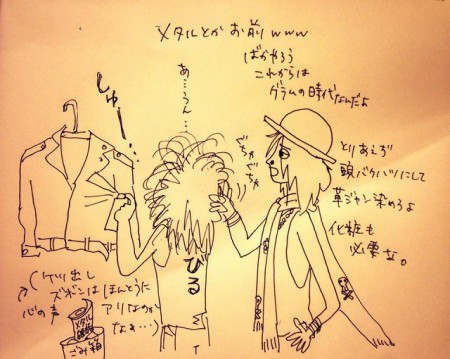 メタルとかお前www
ばかやろう
これからは
グラムの時代なんだよ
あ…うん…
しゅー…
ぐちゃぐちゃ
とりあえず
頭バクハツにして
革ジャン染めろよ
化粧も
必要な。
びる
(ケツ出し
ズボンは ほんとうに
アリなのか
なぁ…)
心の声
メタル
ごみ箱